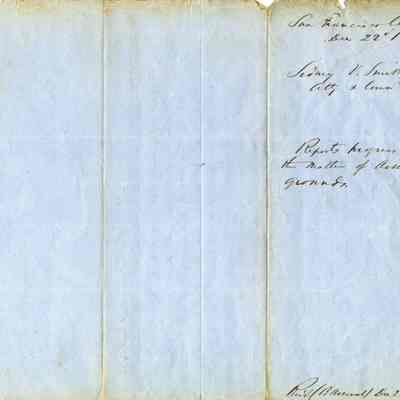 San Francisco C
Dec 22d 1
Sidney V. Smith
Atty & Coun
Reports progress
the matter of
grounds.
Recd Dec 2